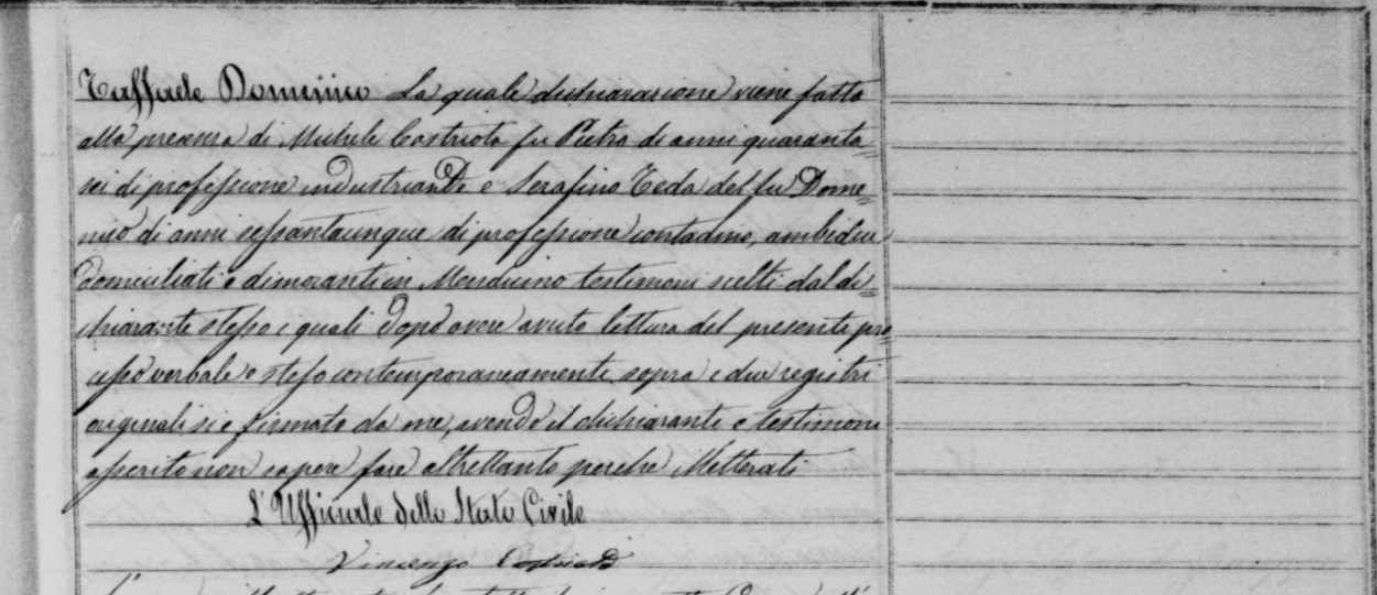 Raffaele Domenico La quale dichiarazione viene fatta
alla presenza di Michele Castriota fu Pietro di anni quaranta=
sei di professione industriante e Serafino Reda del fu Dome=
nico di anni sessantacinque di professione contadino, ambidue
domiciliati e dimoranti in Mendicino testimoni scelti dal di=
chiarante stesso i quali dopo avere avuto lettura del presente pro=
cesso verbale e steso contemporaneamente sopra i due registri
originali si è firmato da me, avendo il dichiarante e testimoni
asserito non sapere fare altrettanto perche illetterati
L'Ufficiale dello Stato Civile
Vincenzo